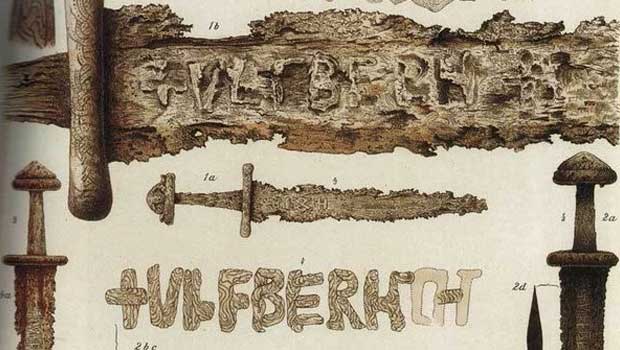 1b
+VLFBERH
1a
2a
+VLFBERH
2d
2bc